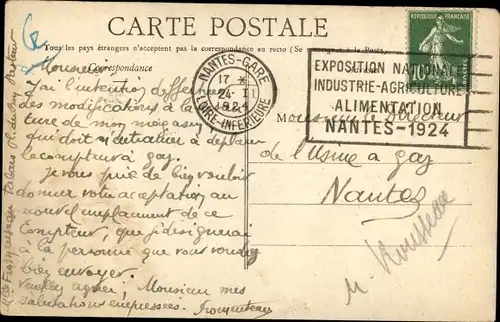 CARTE POSTALE
Tous les pays étrangers n'acceptent pas la correspondance au recto (Se renseigner à la Poste)
Correspondance
RÉPUBLIQUE FRANÇAISE
10
POSTES
NANTES-GARE
17 *
24-II
1924
LOIRE-INFERIEURE
EXPOSITION NATIONALE
INDUSTRIE-AGRICULTURE
ALIMENTATION
NANTES-1924
Monsieur
J'ai l'intention d'effectuer
des modifications à la
ture de mon magasin
qui doit à déplacer
le compteur à gaz.
Je vous prie de bien vouloir
donner votre acceptation au
nouvel emplacement de ce
Compteur, que je désignerai
à la personne que vous voudrez
bien envoyer.
Veuillez agréer, Monsieur mes
salutations empressées. Fromenteau
Monsieur le Directeur
de l'Usine a gaz
Nantes
M. Rousseau
Fromenteau Tabacs Pasteur